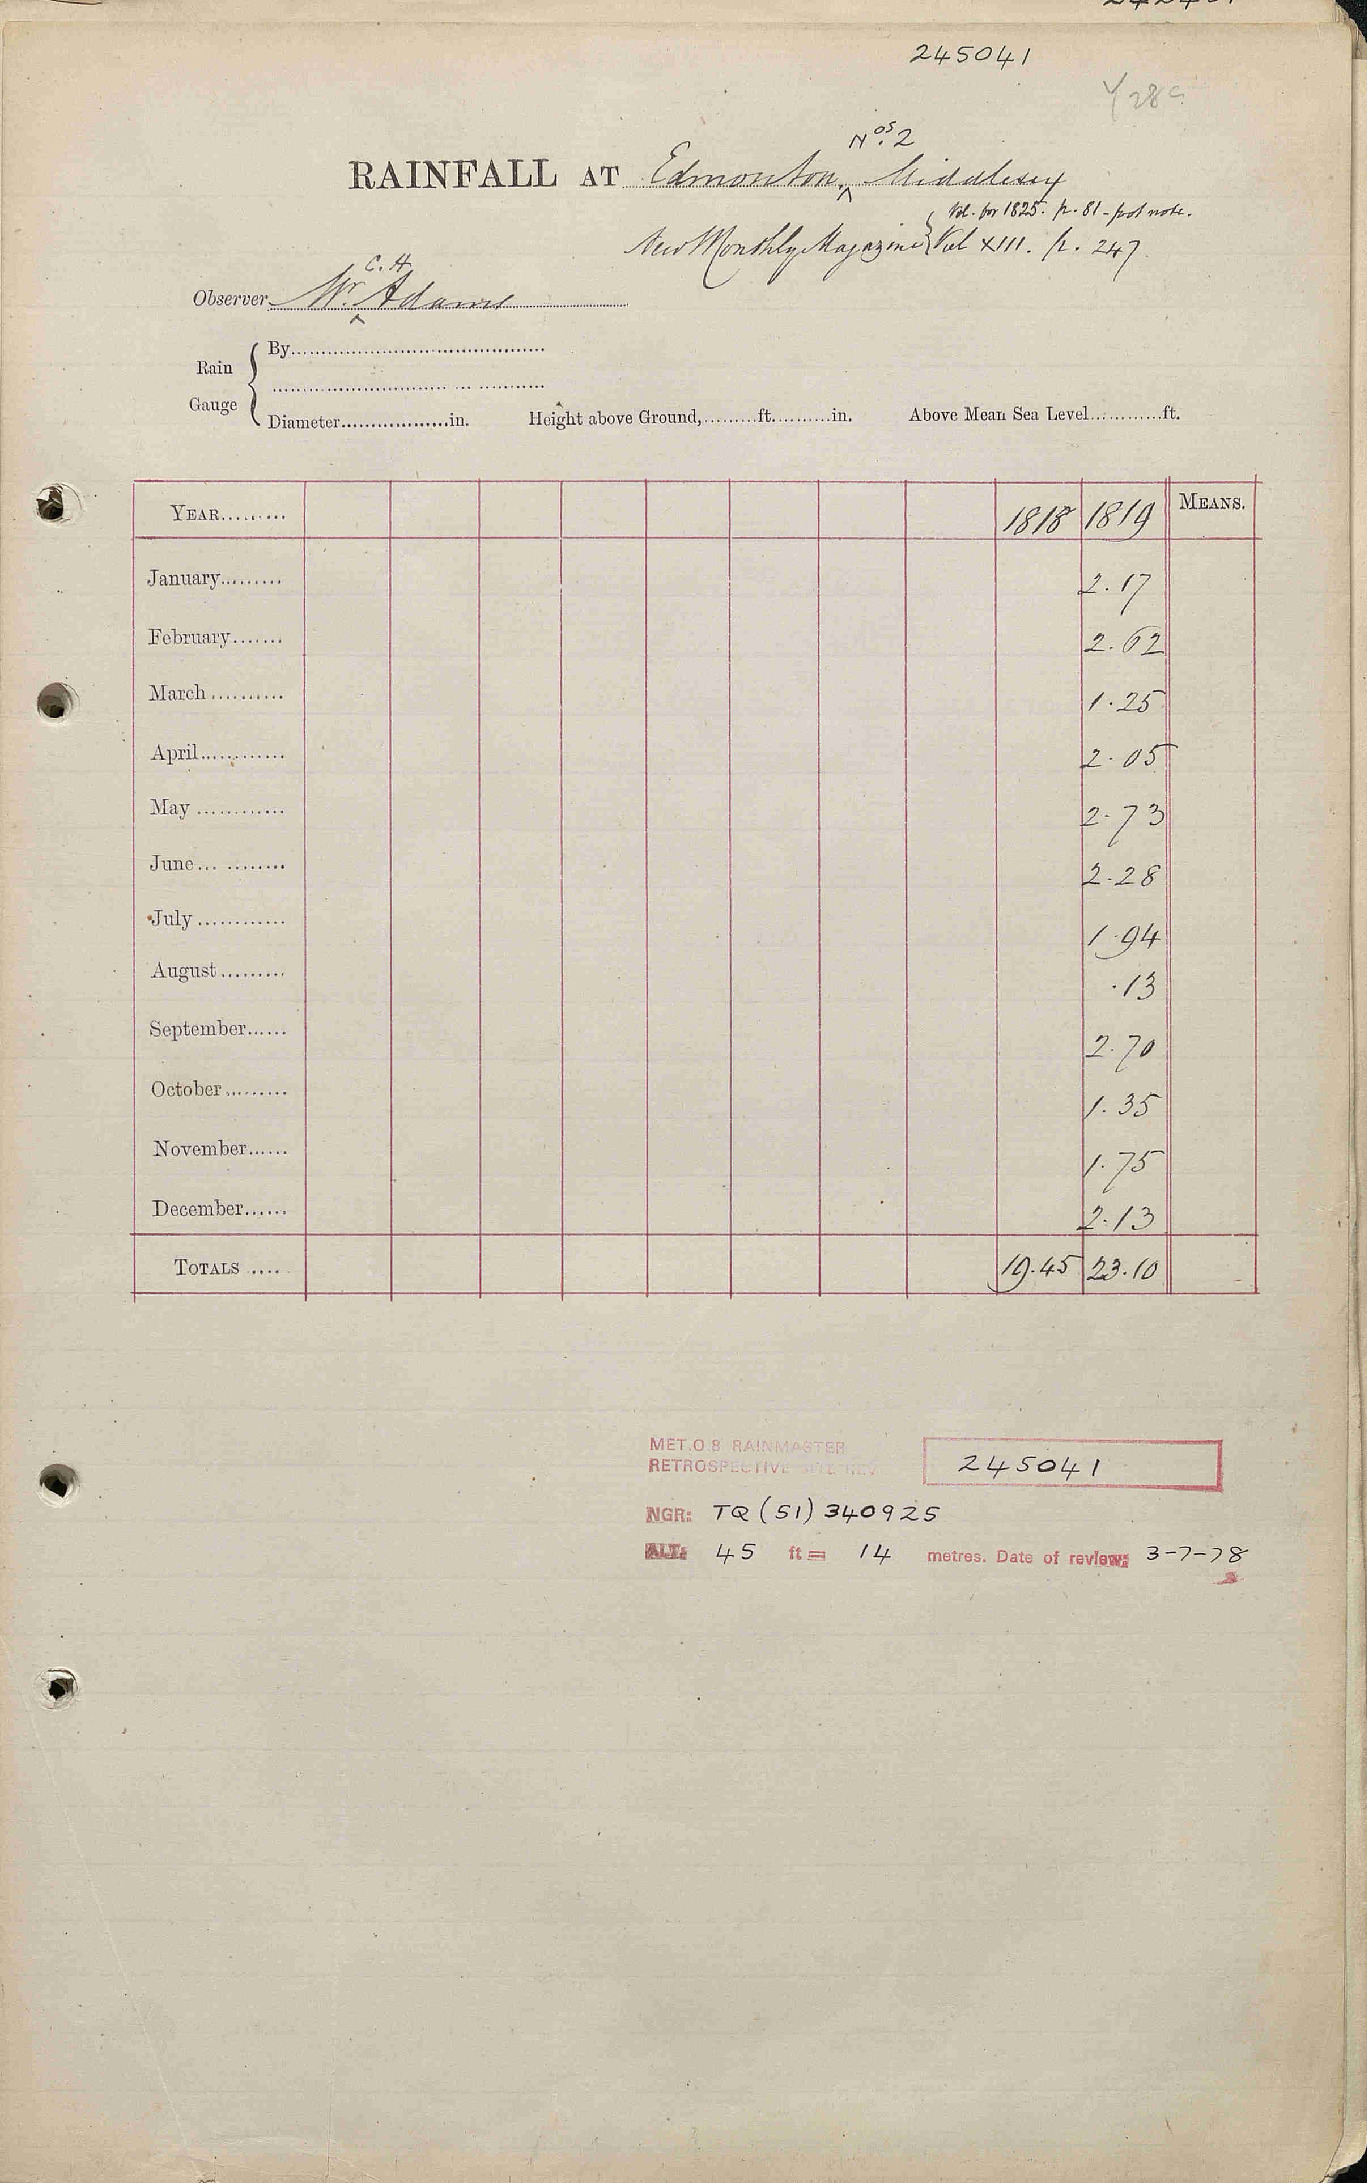 245041
Nos. 2
RAINFALL AT Edmonton, Middlesex
Vol. for 1825. p. 81 - foot note.
New Monthly Magazine Vol XIII. p. 247
C. H.
Observer Mr. Adams
Rain Gauge
By
Diameter in. Height above Ground, ft. in. Above Mean Sea Level ft.
YEAR 1818 1819 MEANS.
January 2.17
February 2.62
March 1.25
April 2.05
May 2.73
June 2.28
July 1.94
August .13
September 2.70
October 1.35
November 1.75
December 2.13
TOTALS 19.45 23.10
MET.O.8 RAINMASTER
RETROSPECTIVE 245041
NGR: TQ (51) 340925
ALT: 45 ft = 14 metres. Date of review: 3-7-78